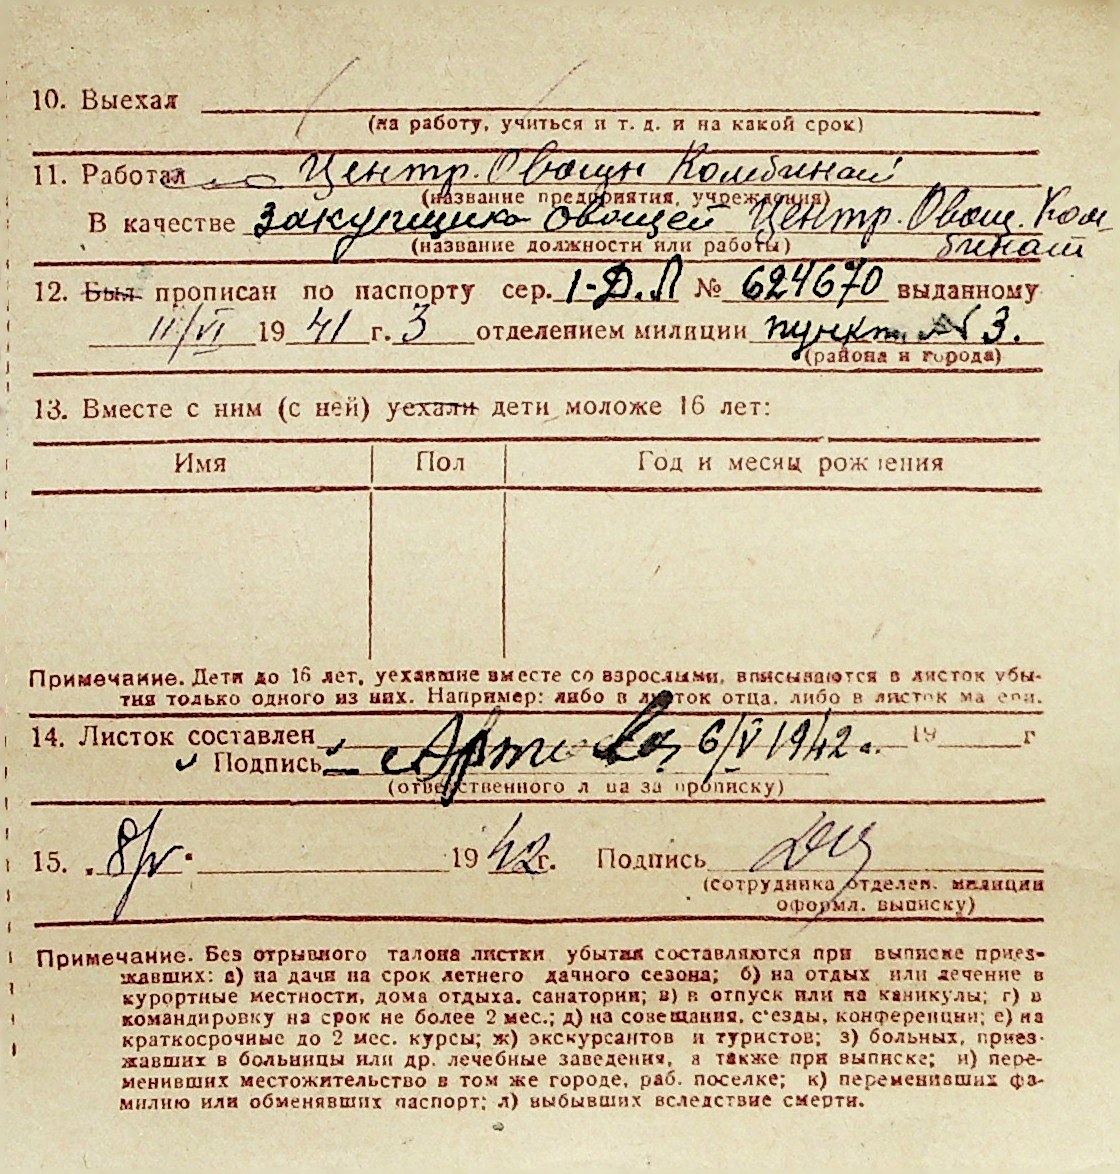 10. Выехал
(на работу, учиться и т. д. и на какой срок)
11. Работал Центр. Овощн Комбинат
(название предприятия, учреждения)
В качестве закупщика овощей Центр. Овощ. Ком
(название должности или работы) бинат
12. Был прописан по паспорту сер. 1-Д.Л № 624670 выданному
III/VI 19 41 г. 3 отделением милиции пункт. № 3.
(района и города)
13. Вместе с ним (с ней) уехали дети моложе 16 лет:
Имя Пол Год и месяц рождения
Примечание. Дети до 16 лет, уехавшие вместе со взрослыми, вписываются в листок убы-
тия только одного из них. Например: либо в листок отца, либо в листок матери.
14. Листок составлен 6/V 1942 г. 19 г
Подпись
(ответственного лица за прописку)
15. 8/V 19 42 г. Подпись
(сотрудника отделен. милиции
оформл. выписку)
Примечание. Без отрывного талона листки убытия составляются при выписке приез-
жавших: а) на дачи на срок летнего дачного сезона; б) на отдых или лечение в
курортные местности, дома отдыха, санатории; в) в отпуск или на каникулы; г) в
командировку на срок не более 2 мес.; д) на совещания, с'езды, конференции; е) на
краткосрочные до 2 мес. курсы; ж) экскурсантов и туристов; з) больных, приез-
жавших в больницы или др. лечебные заведения, а также при выписке; и) пере-
менивших местожительство в том же городе, раб. поселке; к) переменивших фа-
милию или обменявших паспорт; л) выбывших вследствие смерти.